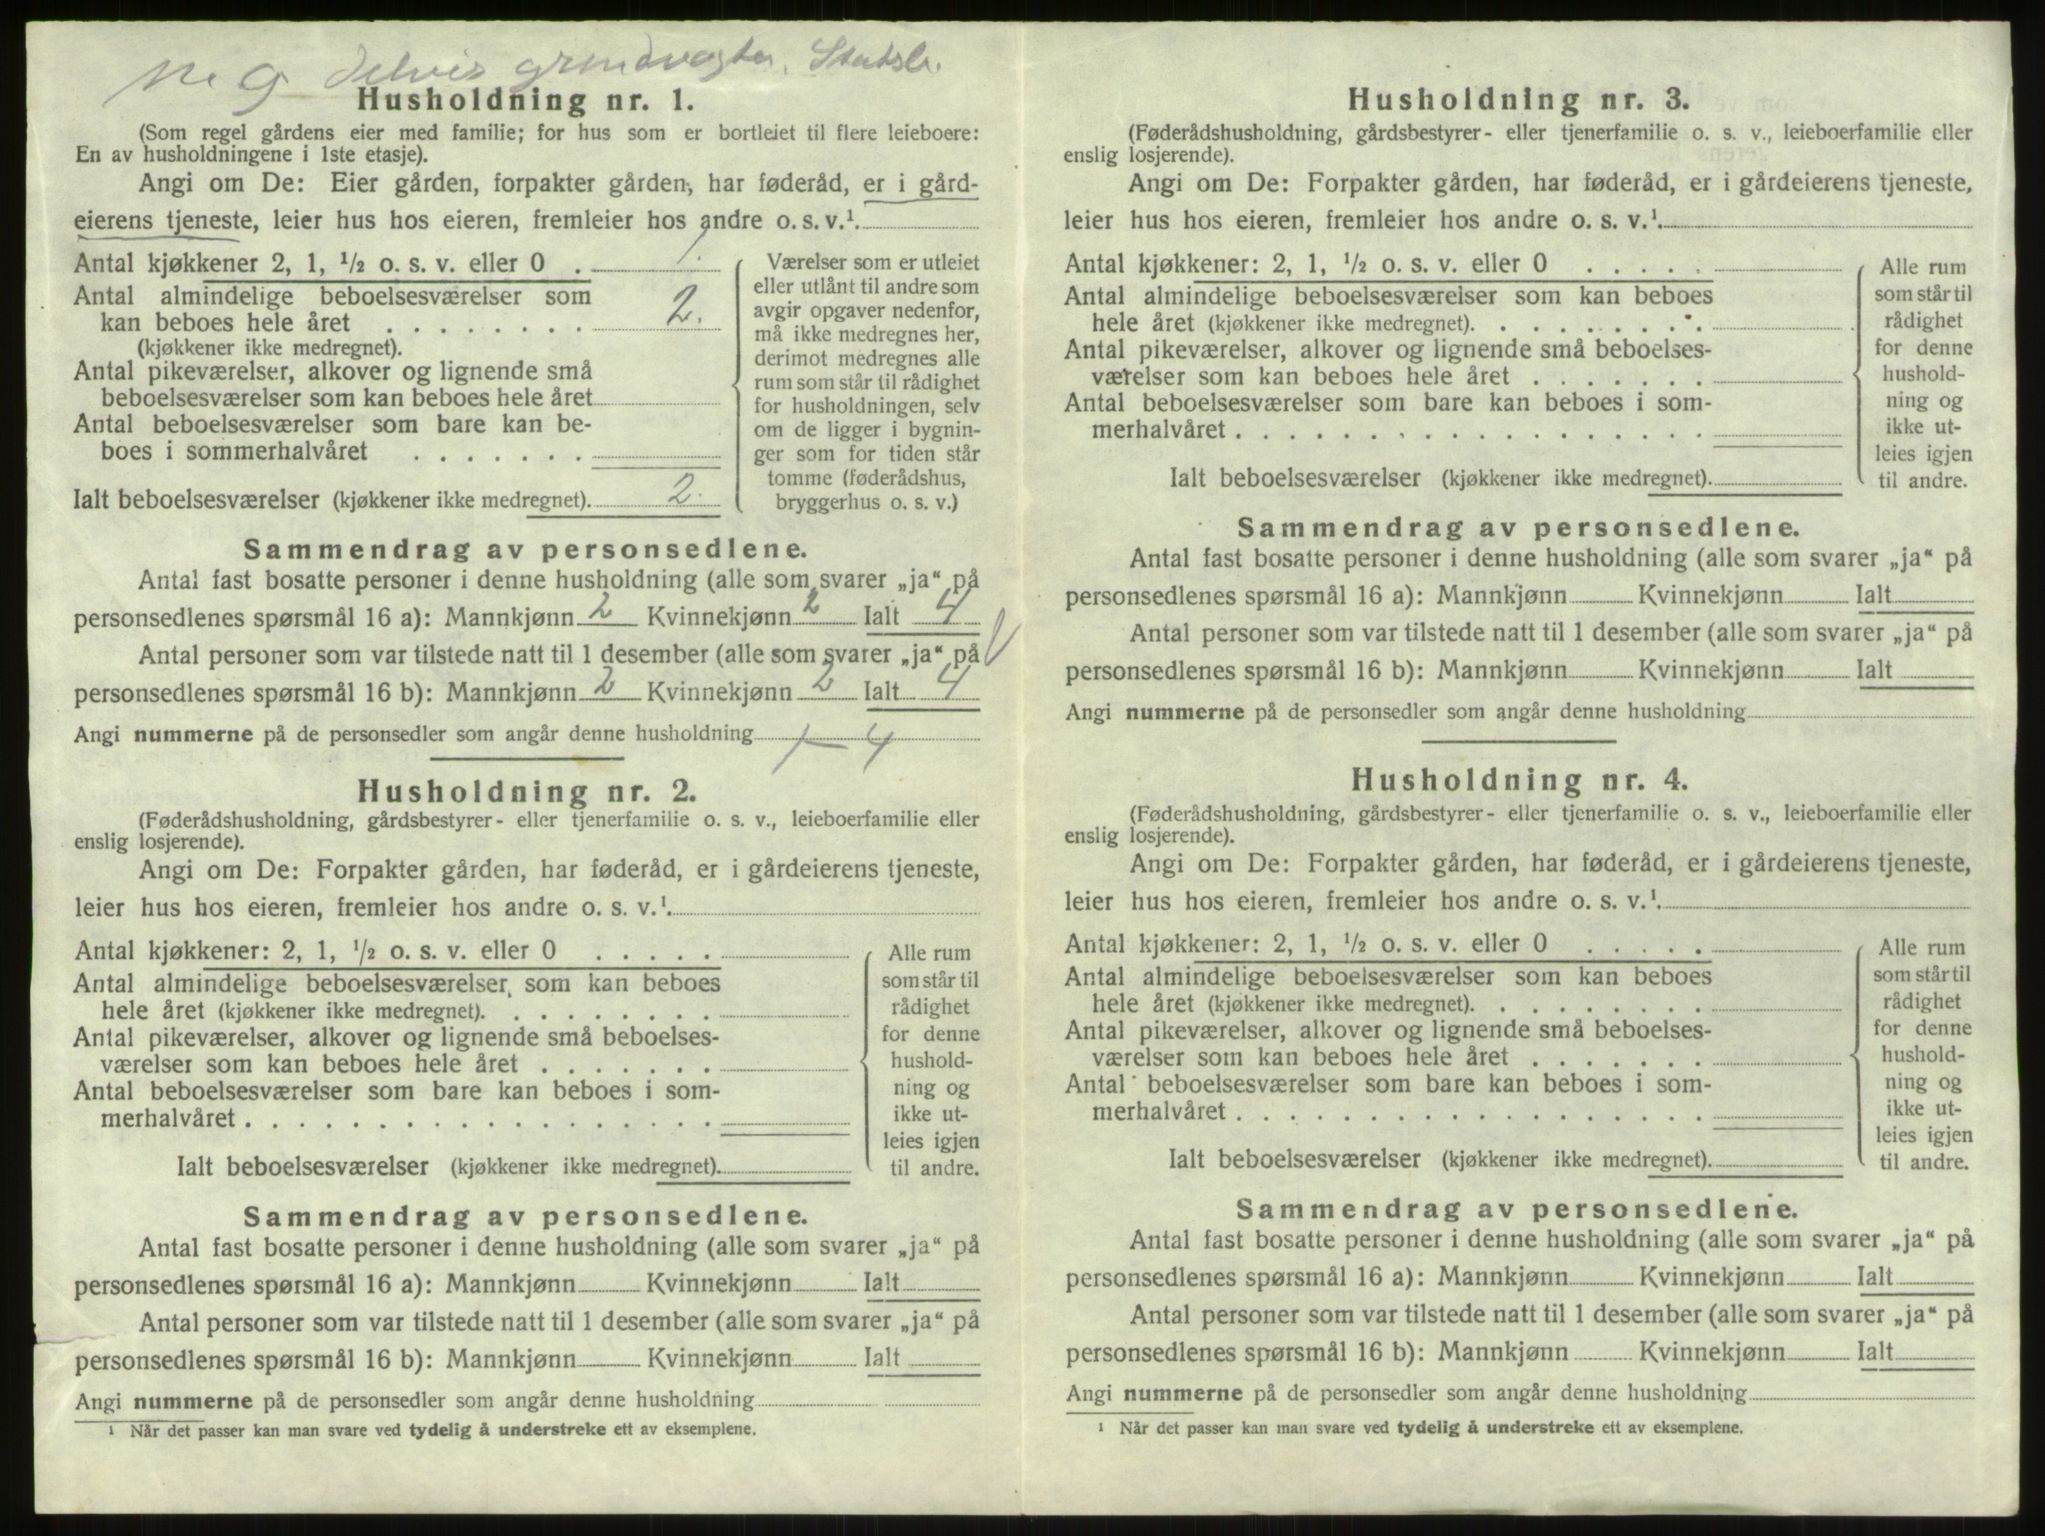 No 9 delvis grindvogter. Statsb.
Husholdning nr. 1.
(Som regel gårdens eier med familie; for hus som er bortleiet til flere leieboere:
En av husholdningene i 1ste etasje).
Angi om De: Eier gården, forpakter gården, har føderåd, er i gård-
eierens tjeneste, leier hus hos eieren, fremleier hos andre o. s. v.¹
Antal kjøkkener 2, 1, ½ o. s. v. eller 0 . 1.
Antal almindelige beboelsesværelser som
kan beboes hele året . . . . . . . . 2.
(kjøkkener ikke medregnet).
Antal pikeværelser, alkover og lignende små
beboelsesværelser som kan beboes hele året
Antal beboelsesværelser som bare kan be-
boes i sommerhalvåret . . . . . . .
Ialt beboelsesværelser (kjøkkener ikke medregnet). 2.
Værelser som er utleiet
eller utlånt til andre som
avgir opgaver nedenfor,
må ikke medregnes her,
derimot medregnes alle
rum som står til rådighet
for husholdningen, selv
om de ligger i bygnin-
ger som for tiden står
tomme (føderådshus,
bryggerhus o. s. v.)
Sammendrag av personsedlene.
Antal fast bosatte personer i denne husholdning (alle som svarer „ja“ på
personsedlenes spørsmål 16 a): Mannkjønn 2 Kvinnekjønn 2 Ialt 4
Antal personer som var tilstede natt til 1 desember (alle som svarer „ja“ på
personsedlenes spørsmål 16 b): Mannkjønn 2 Kvinnekjønn 2 Ialt 4
Angi nummerne på de personsedler som angår denne husholdning 1 — 4
Husholdning nr. 2.
(Føderådshusholdning, gårdsbestyrer- eller tjenerfamilie o. s. v., leieboerfamilie eller
enslig losjerende).
Angi om De: Forpakter gården, har føderåd, er i gårdeierens tjeneste,
leier hus hos eieren, fremleier hos andre o. s. v.¹
Antal kjøkkener: 2, 1, ½ o. s. v. eller 0 . . . . .
Antal almindelige beboelsesværelser som kan beboes
hele året (kjøkkener ikke medregnet). . . . . . . . .
Antal pikeværelser, alkover og lignende små beboelses-
værelser som kan beboes hele året . . . . . . .
Antal beboelsesværelser som bare kan beboes i som-
merhalvåret . . . . . . . . . . . . . . . . . .
Ialt beboelsesværelser (kjøkkener ikke medregnet).
Alle rum
som står til
rådighet
for denne
hushold-
ning og
ikke ut-
leies igjen
til andre.
Sammendrag av personsedlene.
Antal fast bosatte personer i denne husholdning (alle som svarer „ja“ på
personsedlenes spørsmål 16 a): Mannkjønn Kvinnekjønn Ialt
Antal personer som var tilstede natt til 1 desember (alle som svarer „ja“ på
personsedlenes spørsmål 16 b): Mannkjønn Kvinnekjønn Ialt
Angi nummerne på de personsedler som angår denne husholdning
¹ Når det passer kan man svare ved tydelig å understreke ett av eksemplene.
Husholdning nr. 3.
(Føderådshusholdning, gårdsbestyrer- eller tjenerfamilie o. s. v., leieboerfamilie eller
enslig losjerende).
Angi om De: Forpakter gården, har føderåd, er i gårdeierens tjeneste,
leier hus hos eieren, fremleier hos andre o. s. v.¹
Antal kjøkkener: 2, 1, ½ o. s. v. eller 0 . . . . .
Antal almindelige beboelsesværelser som kan beboes
hele året (kjøkkener ikke medregnet). . . . . . . . .
Antal pikeværelser, alkover og lignende små beboelses-
værelser som kan beboes hele året . . . . . . .
Antal beboelsesværelser som bare kan beboes i som-
merhalvåret . . . . . . . . . . . . . . . . . .
Ialt beboelsesværelser (kjøkkener ikke medregnet).
Alle rum
som står til
rådighet
for denne
hushold-
ning og
ikke ut-
leies igjen
til andre.
Sammendrag av personsedlene.
Antal fast bosatte personer i denne husholdning (alle som svarer „ja“ på
personsedlenes spørsmål 16 a): Mannkjønn Kvinnekjønn Ialt
Antal personer som var tilstede natt til 1 desember (alle som svarer „ja“ på
personsedlenes spørsmål 16 b): Mannkjønn Kvinnekjønn Ialt
Angi nummerne på de personsedler som angår denne husholdning
Husholdning nr. 4.
(Føderådshusholdning, gårdsbestyrer- eller tjenerfamilie o. s. v., leieboerfamilie eller
enslig losjerende).
Angi om De: Forpakter gården, har føderåd, er i gårdeierens tjeneste,
leier hus hos eieren, fremleier hos andre o. s. v.¹
Antal kjøkkener: 2, 1, ½ o. s. v. eller 0 . . . . .
Antal almindelige beboelsesværelser som kan beboes
hele året (kjøkkener ikke medregnet). . . . . . . . .
Antal pikeværelser, alkover og lignende små beboelses-
værelser som kan beboes hele året . . . . . . .
Antal beboelsesværelser som bare kan beboes i som-
merhalvåret . . . . . . . . . . . . . . . . . .
Ialt beboelsesværelser (kjøkkener ikke medregnet).
Alle rum
som står til
rådighet
for denne
hushold-
ning og
ikke ut-
leies igjen
til andre.
Sammendrag av personsedlene.
Antal fast bosatte personer i denne husholdning (alle som svarer „ja“ på
personsedlenes spørsmål 16 a): Mannkjønn Kvinnekjønn Ialt
Antal personer som var tilstede natt til 1 desember (alle som svarer „ja“ på
personsedlenes spørsmål 16 b): Mannkjønn Kvinnekjønn Ialt
Angi nummerne på de personsedler som angår denne husholdning
¹ Når det passer kan man svare ved tydelig å understreke ett av eksemplene.